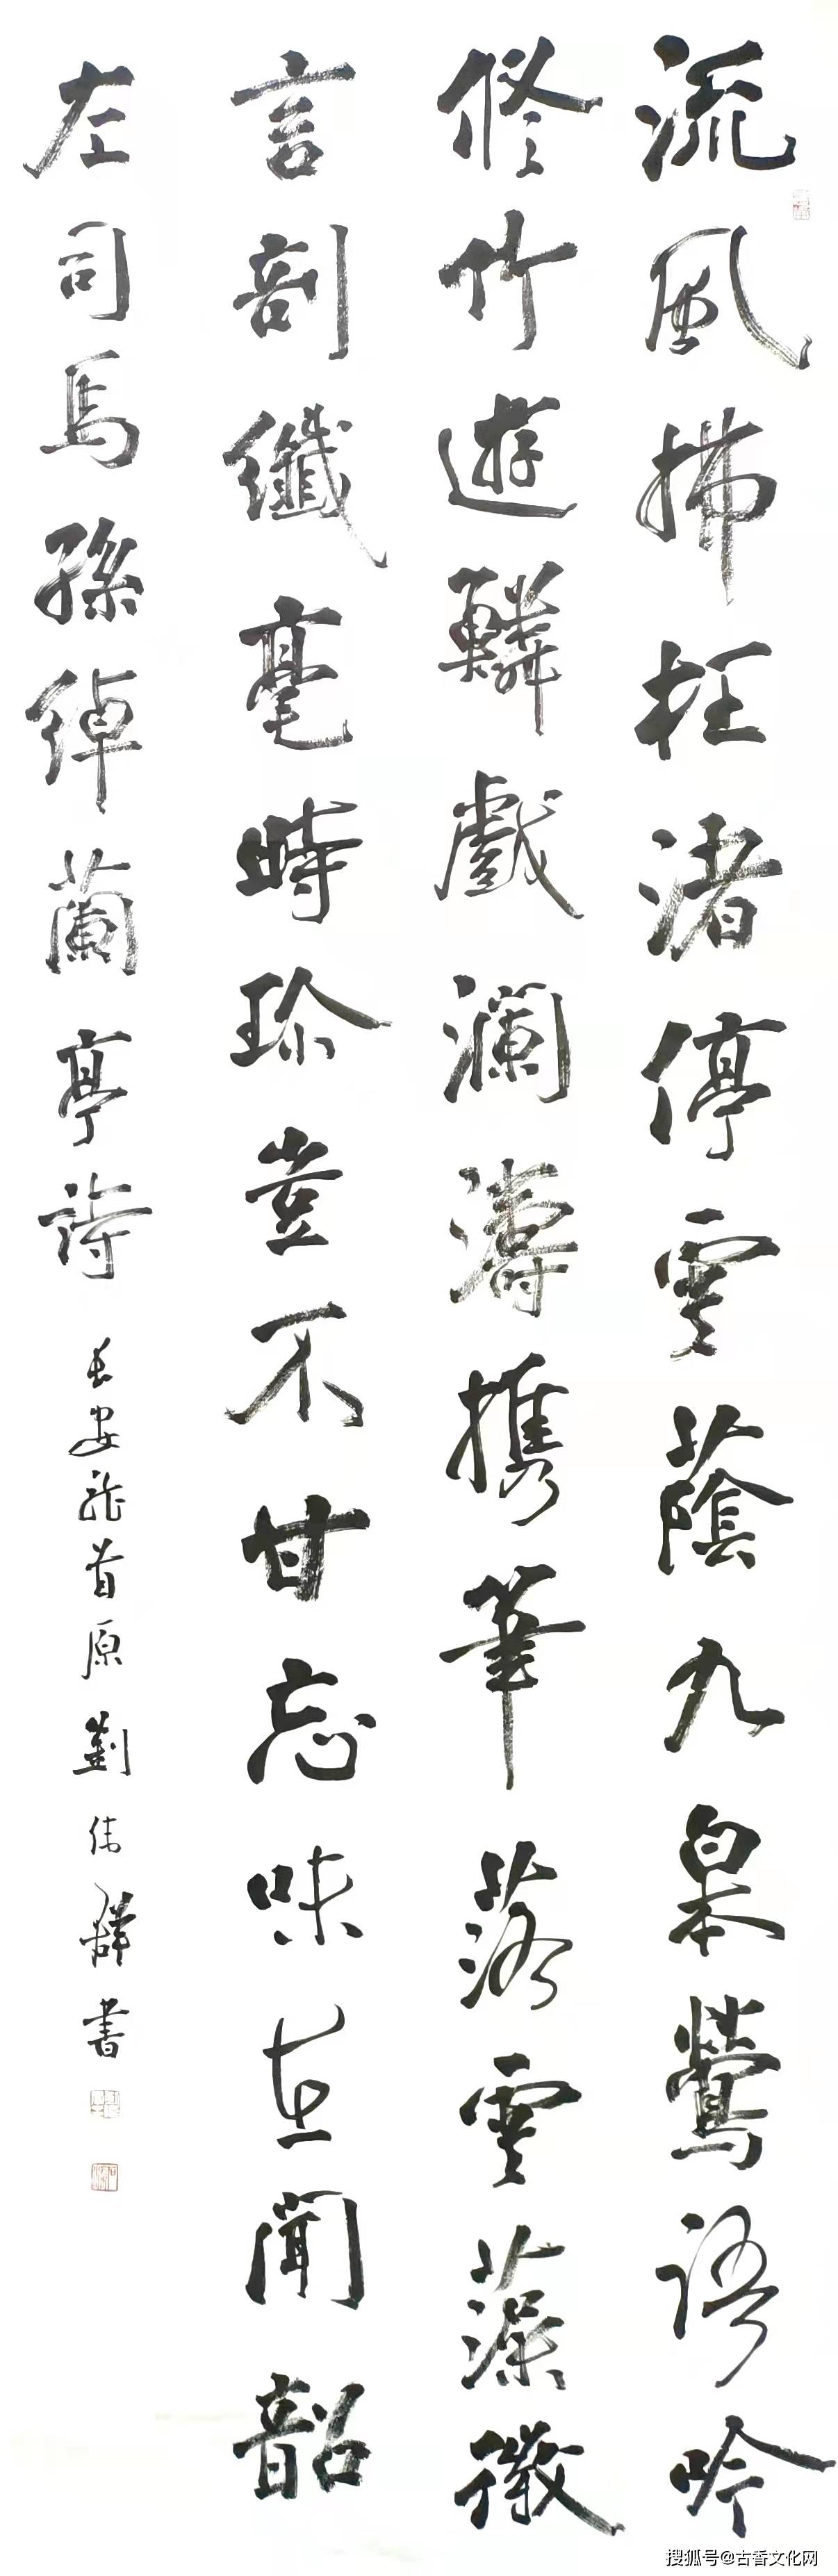 流風拂枉渚停雲蔭九皐鶯語吟
修竹遊鱗戲瀾濤携筆落雲藻微
言剖纖毫時珍豈不甘忘味在聞韶
左司馬孫綽蘭亭詩
長安龍首原劉書
搜狐号@古香文化网